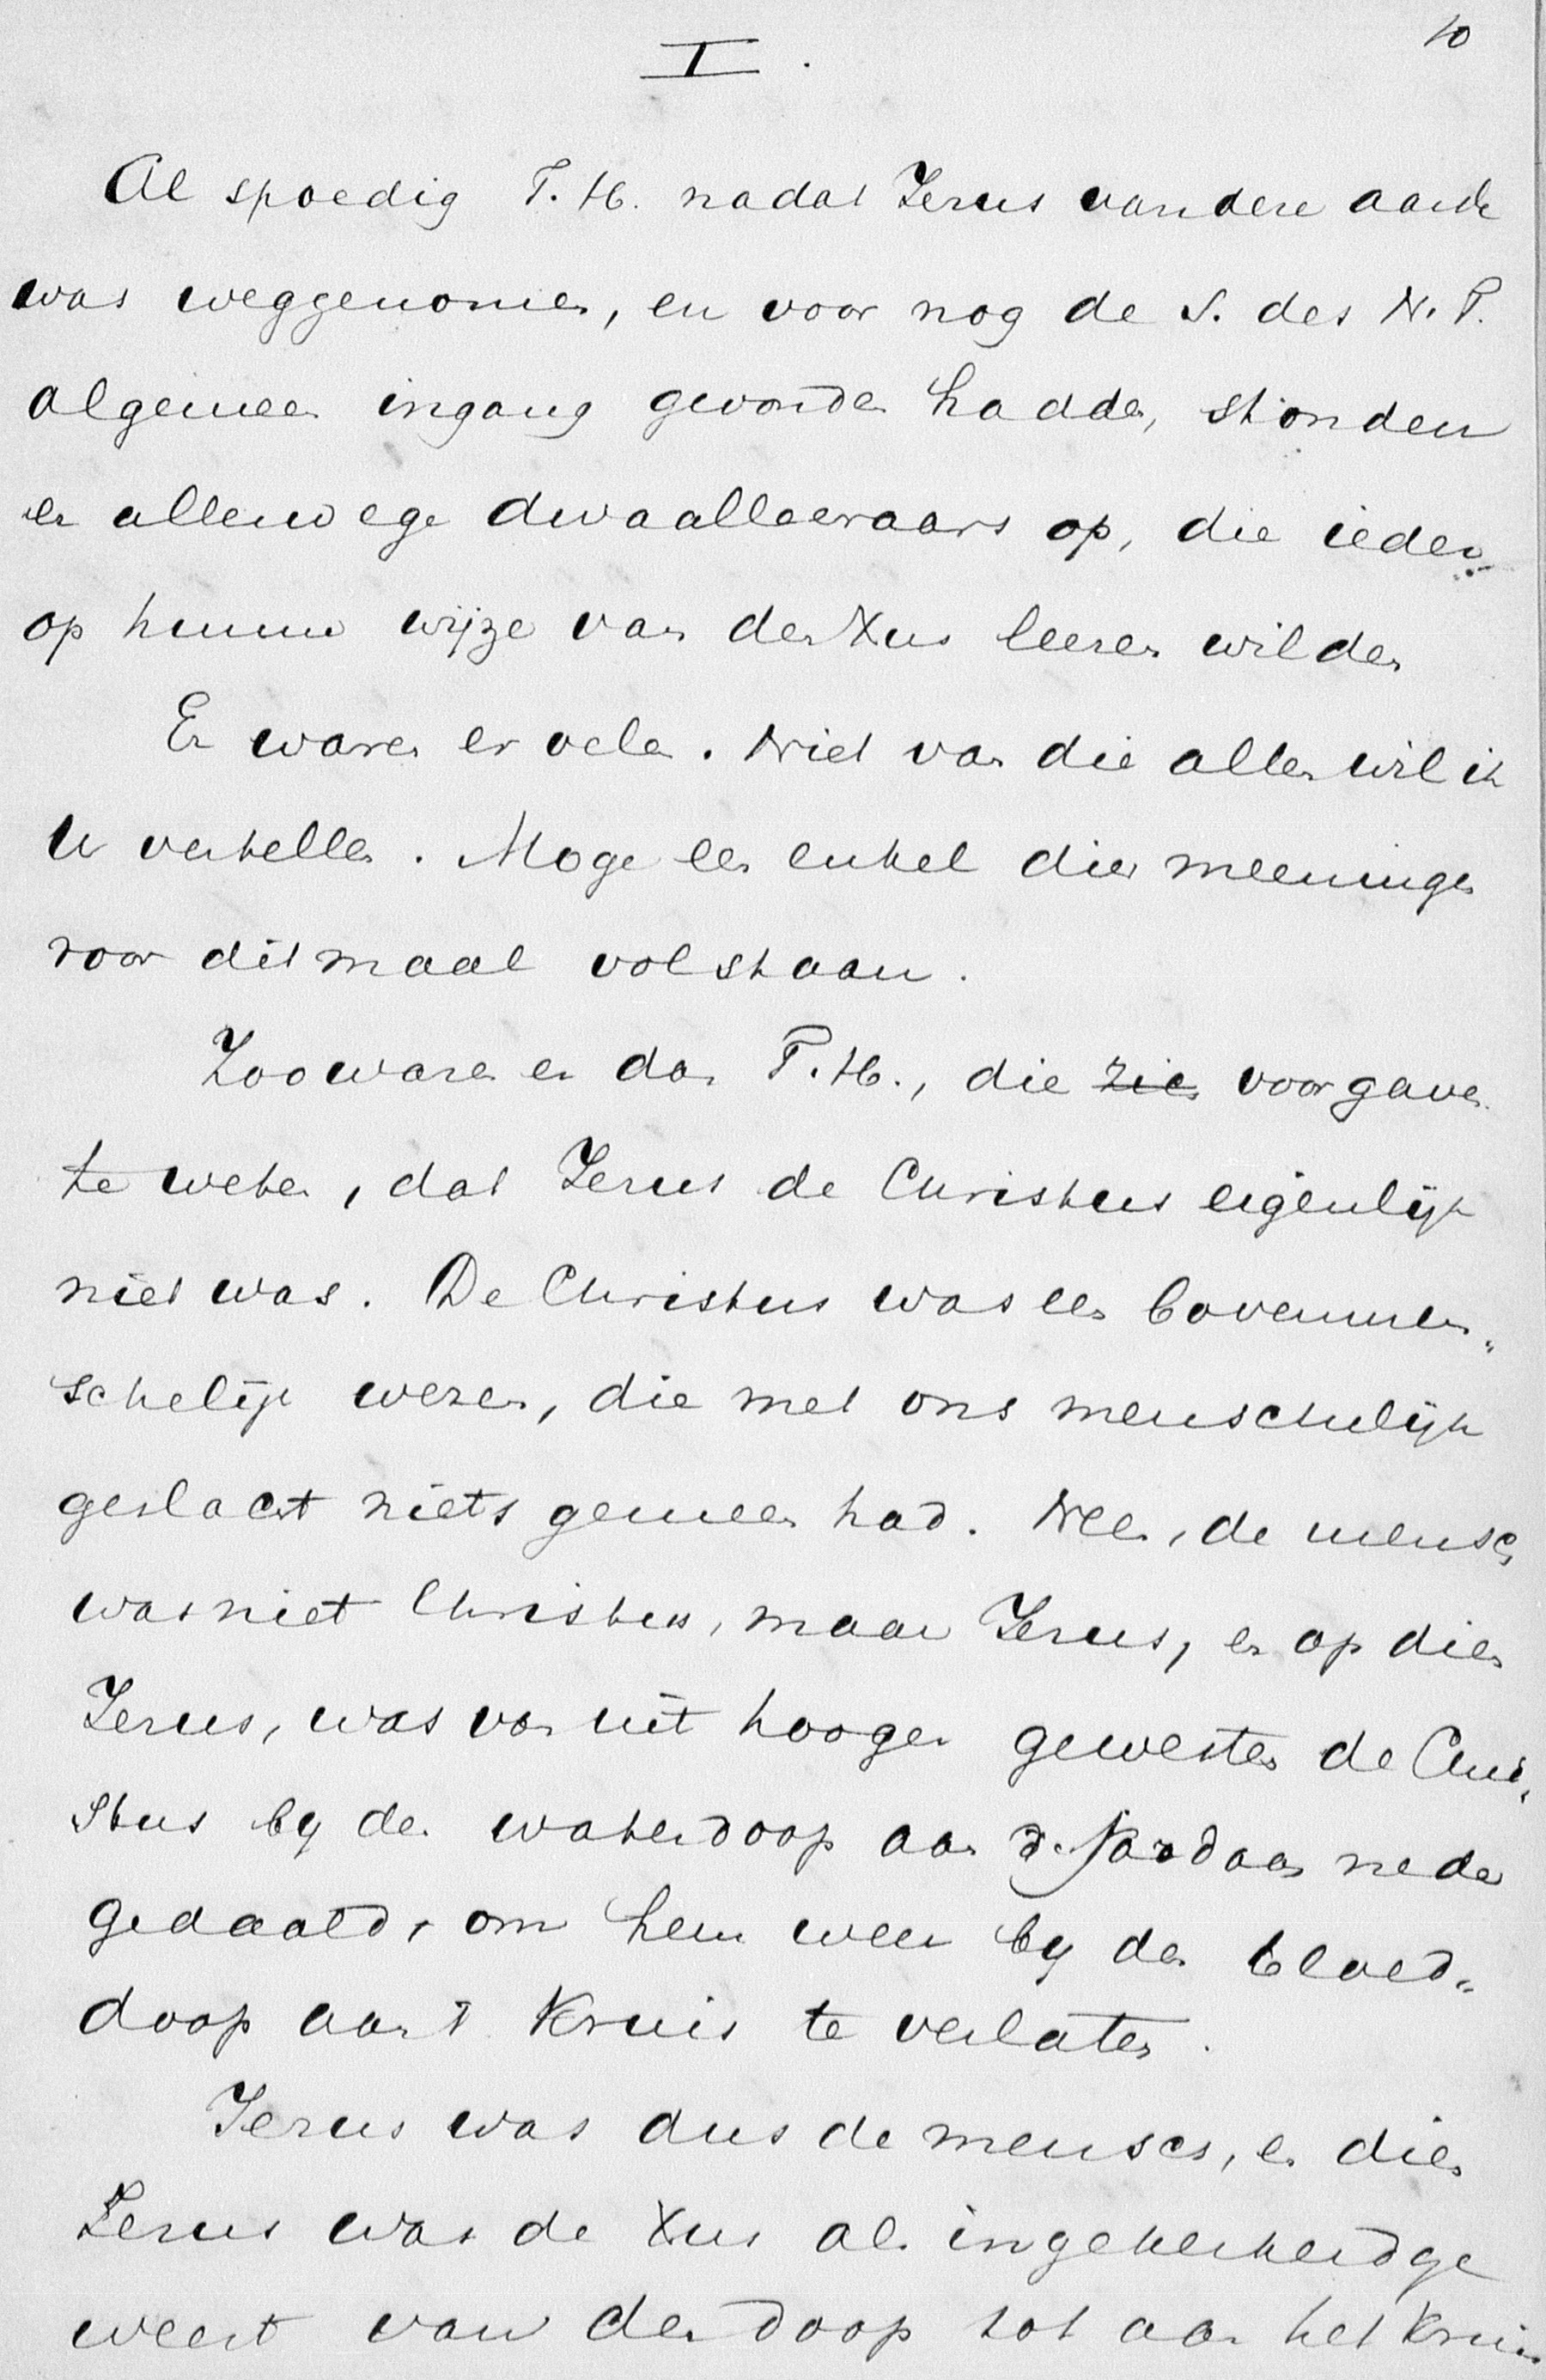 10
I.
Al spoedig T. H. nadat Jezus van deze aarde
was weggenomen, en voor nog de S. des N. T.
algemeen ingang gevonden hadden, stonden
er allerwege dwaalleeraars op, die ieder
op hunne wijze van den Xus leeren wilden
En waren er velen. Niet van die allen wil ik
U vertellen. Moge een enkel dier meeningen
voor ditmaal volstaan.
Zoo waren er dan T. H., die zien voorgaven
te weten, dat Jezus de Christus eigenlijk
niet was. De Christus was een bovenmen„
schelijk wezen, die met ons menschelijk
geslacht niets gemeen had. Neen, de mensch
was niet Christus, maar Jezus, en op dien
Jezus, was van uit hooger gewesten de Chri„
stus by den waterdoop aan de Jordaan neder
gedaald, om hem weer by den bloed„
doop aan 't Kruis te verlaten.
Jezus was dus de mensch, en dien
Jezus was de Xus als ingekerkerd ge
weest van den doop tot aan het Kruis